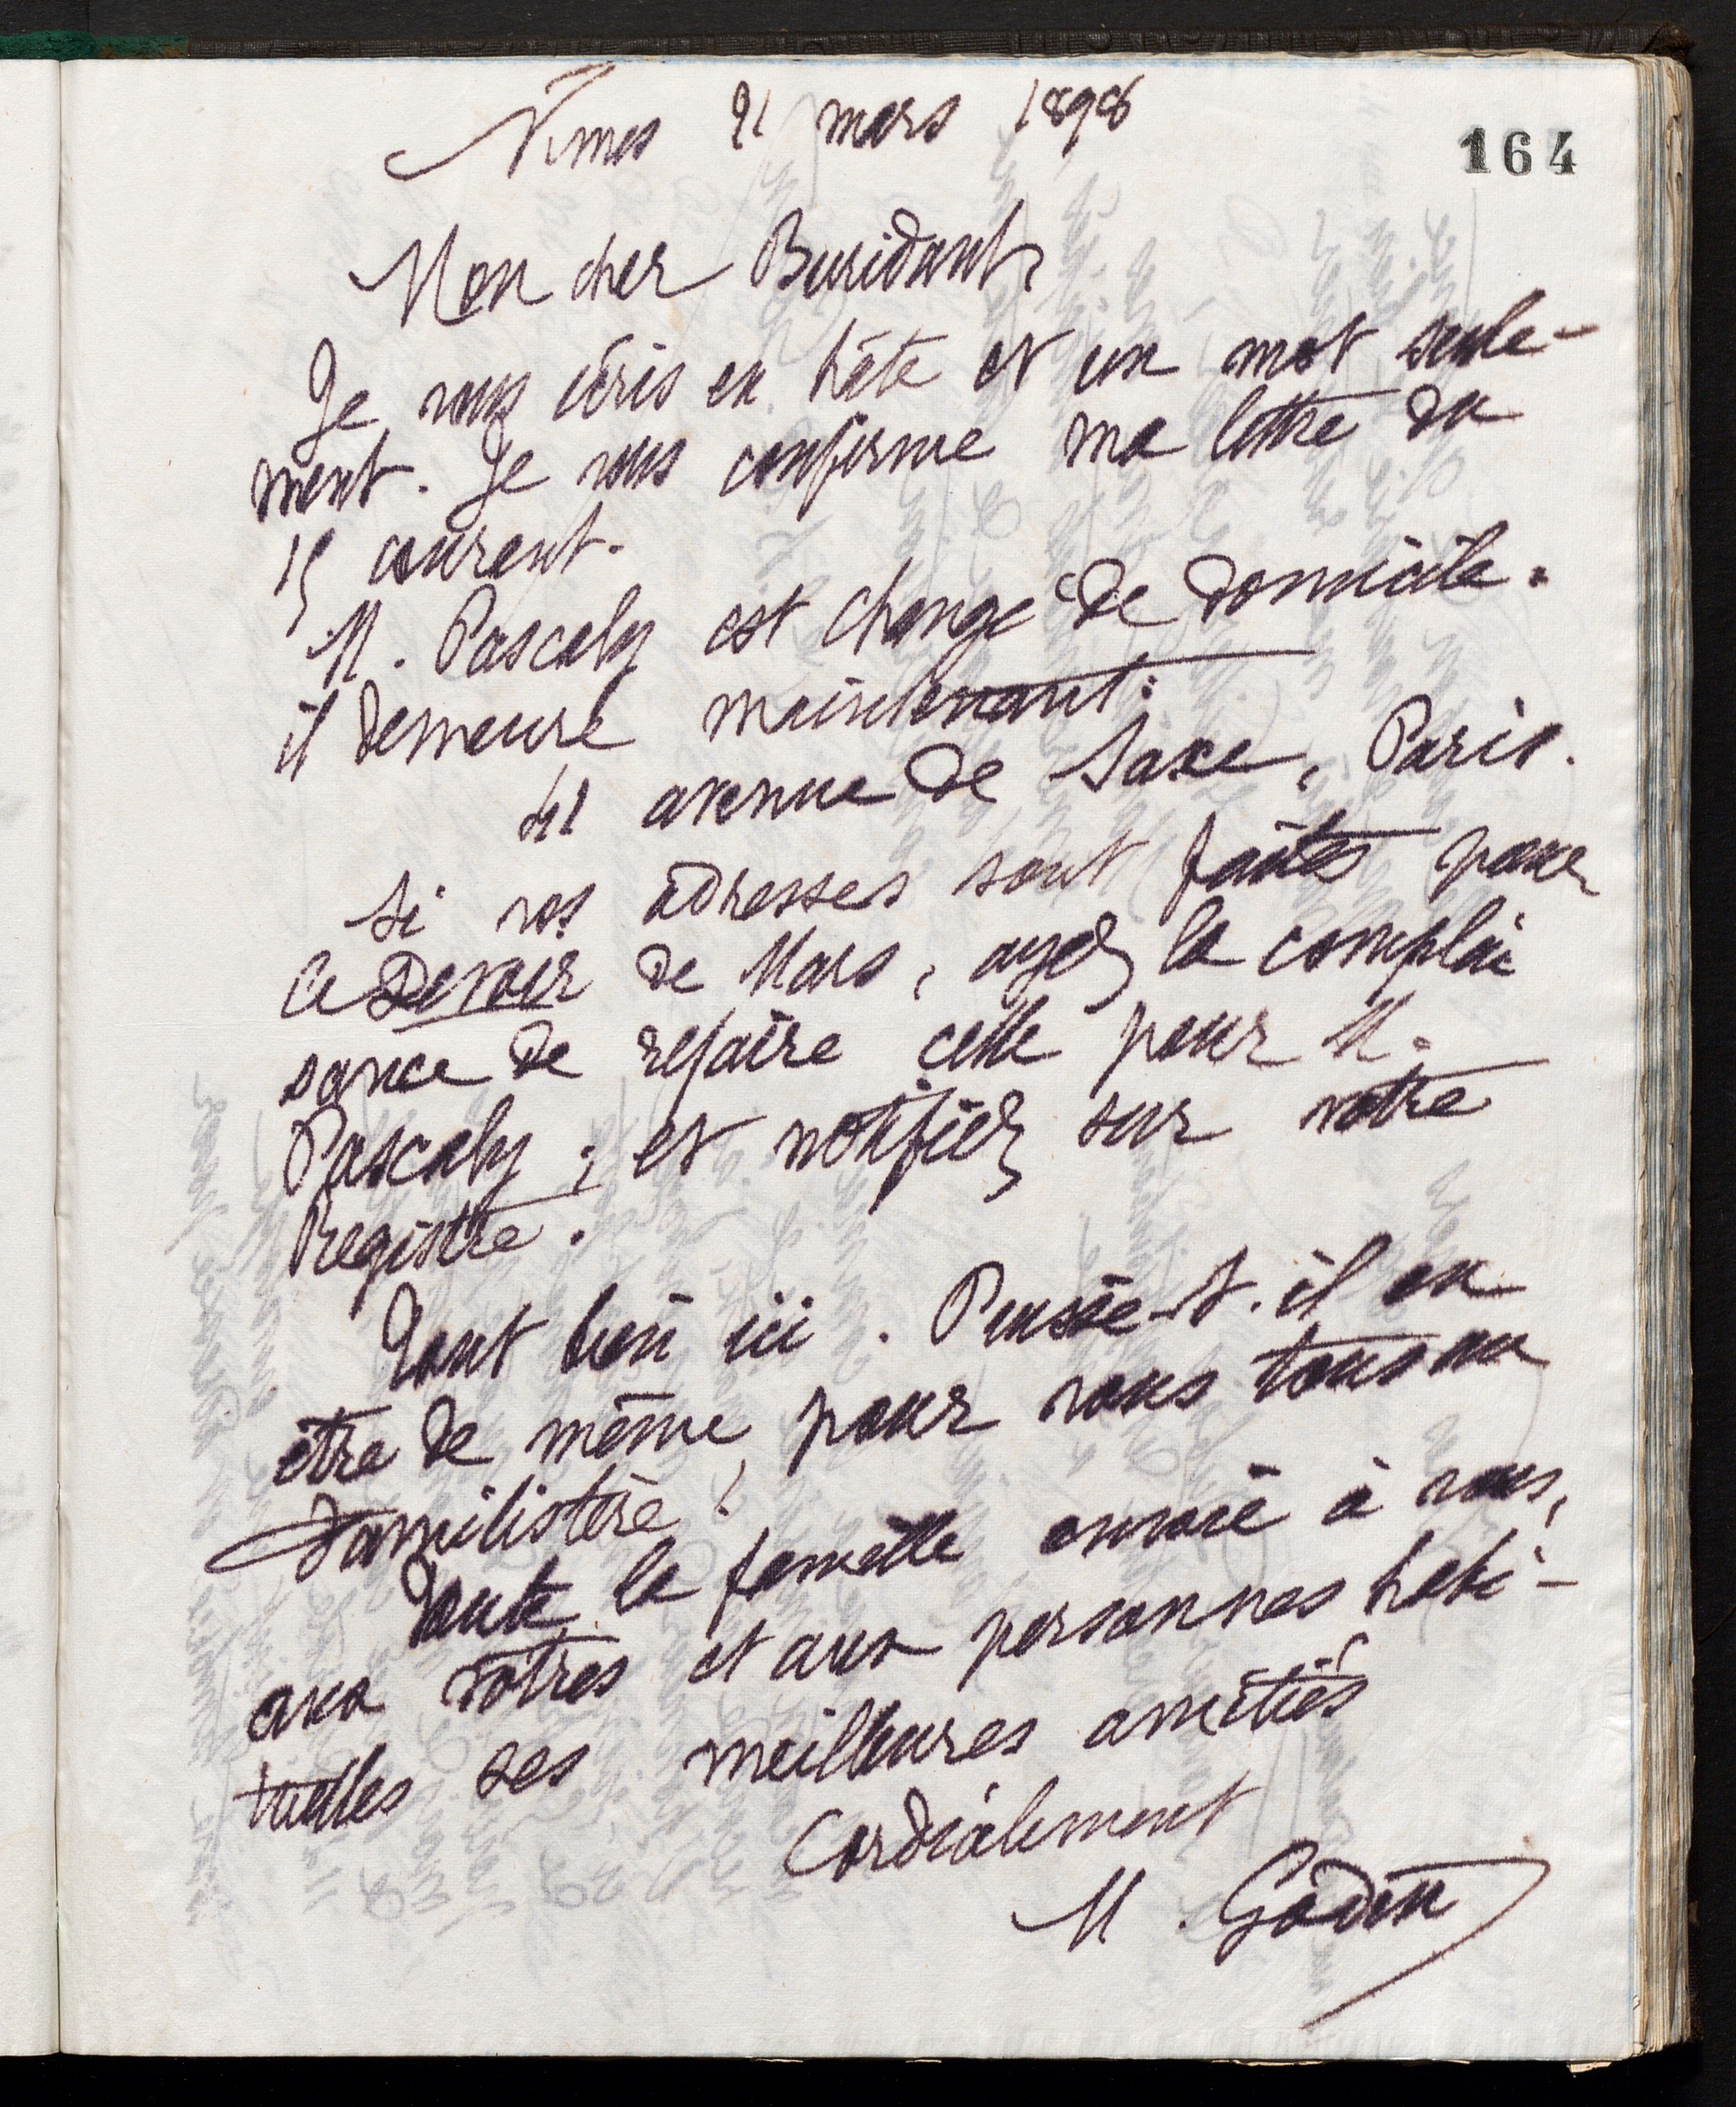 164
Nîmes 21 mars 1898
Mon cher Buridant,
Je vous écris en hâte et un mot seule-
ment. Je vous confirme ma lettre du
15 courant.
M. Pascaly est changé de domicile.
il demeure maintenant :
41 avenue de Saxe, Paris.
Si vos adresses sont faites pour
le Devoir de Mars, ayez la complai
sance de refaire celle pour M.
Pascaly ; et notifiez sur votre
Registre.
Tout bien ici. Puisse-t-il en
être de même pour vous tous au
Familistère !
Toute la famille envoie à vous,
aux vôtres et aux personnes habi-
tuelles ses meilleures amitiés
Cordialement
M. Godin